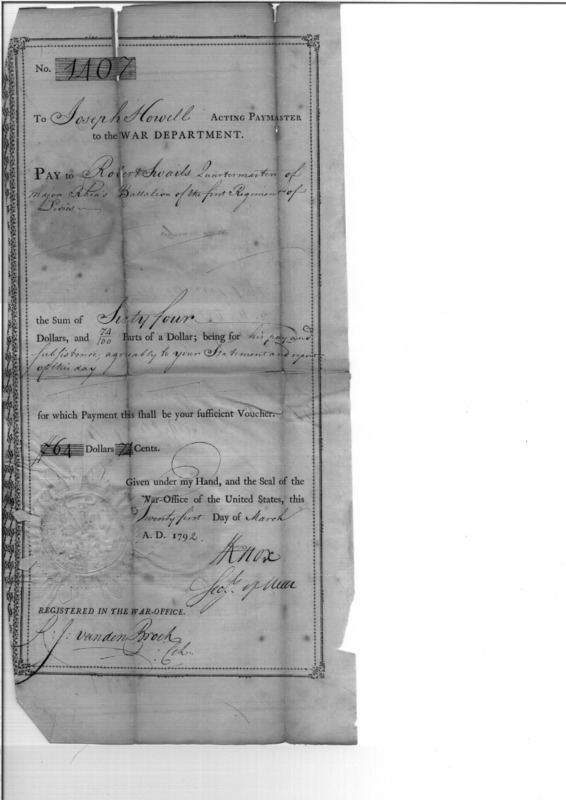 No. 1407
To Joseph Howell ACTING PAYMASTER
to the WAR DEPARTMENT.
PAY to Robert Swails Quartermaster of
Major Rhea's Battalion of the first Regiment of
Levies
the Sum of Sixty four
Dollars, and 74/100 Parts of a Dollar; being for his pay and
subsistence, agreably to your Statement and report
of this day
for which Payment this shall be your sufficient Voucher.
64 Dollars 74 Cents.
Given under my Hand, and the Seal of the
War-Office of the United States, this
Twenty first Day of March
A. D. 1792.
HKnox
Secy. of War
REGISTERED IN THE WAR-OFFICE.
R. J. vanden Broek
Clk.